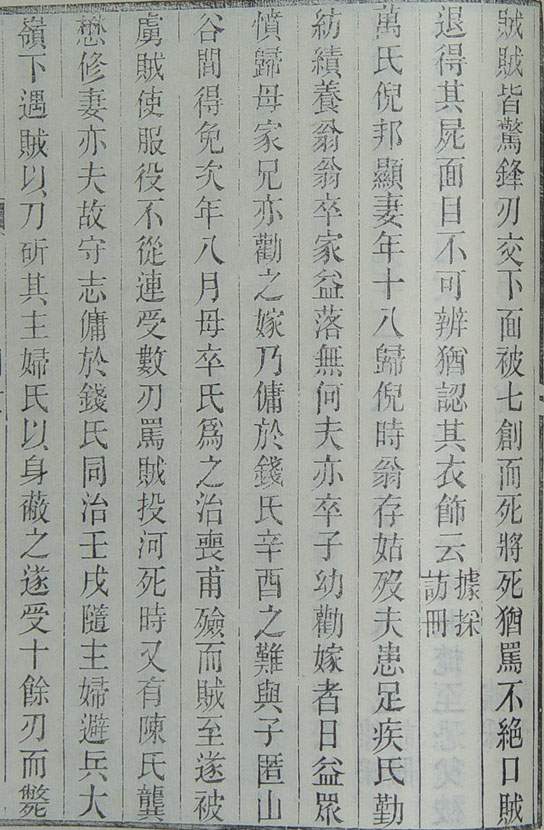 賊賊皆驚鋒刃交下面被七創而死將死猶罵不絕口賊
退得其屍面目不可辨猶認其衣飾云據採訪冊
萬氏倪邦顯妻年十八歸倪時翁存姑歿夫患足疾氏勤
紡績養翁翁卒家益落無何夫亦卒子幼勸嫁者日益眾
憤歸母家兄亦勸之嫁乃傭於錢氏辛酉之難與子匿山
谷間得免次年八月母卒氏為之治喪甫殮而賊至遂被
虜賊使服役不從連受數刃罵賊投河死時又有陳氏龔
懋修妻亦夫故守志傭於錢氏同治壬戌隨主婦避兵大
嶺下遇賊以刀斫其主婦氏以身蔽之遂受十餘刃而斃